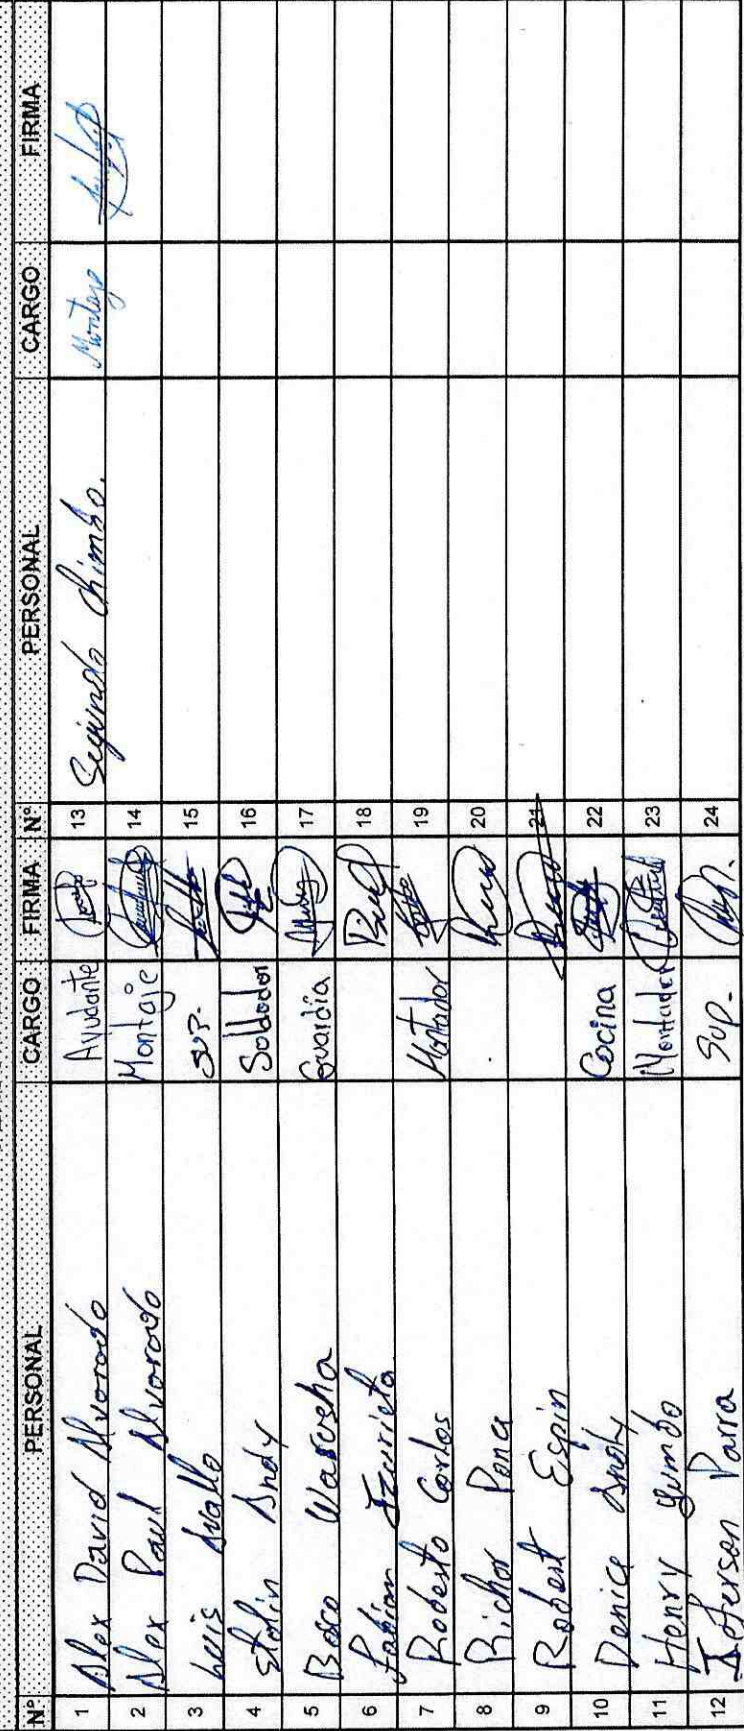 Nº PERSONAL CARGO FIRMA Nº PERSONAL CARGO FIRMA
1 Alex David Alvorodo Ayudante 13 Segundo Chimbo. Montaje
2 Alex Paul Alvorodo Montaje 14
3 Luis Avallo sup. 15
4 Stolin Andy Soldador 16
5 Bosco Guardia 17
6 Fabian Izurieta 18
7 Robesto Carlos Montador 19
8 Richar Poma 20
9 Robert Espin 21
10 Denice Andy Cocina 22
11 Henry Yumbo Montador 23
12 Jeferson Parra Sup. 24